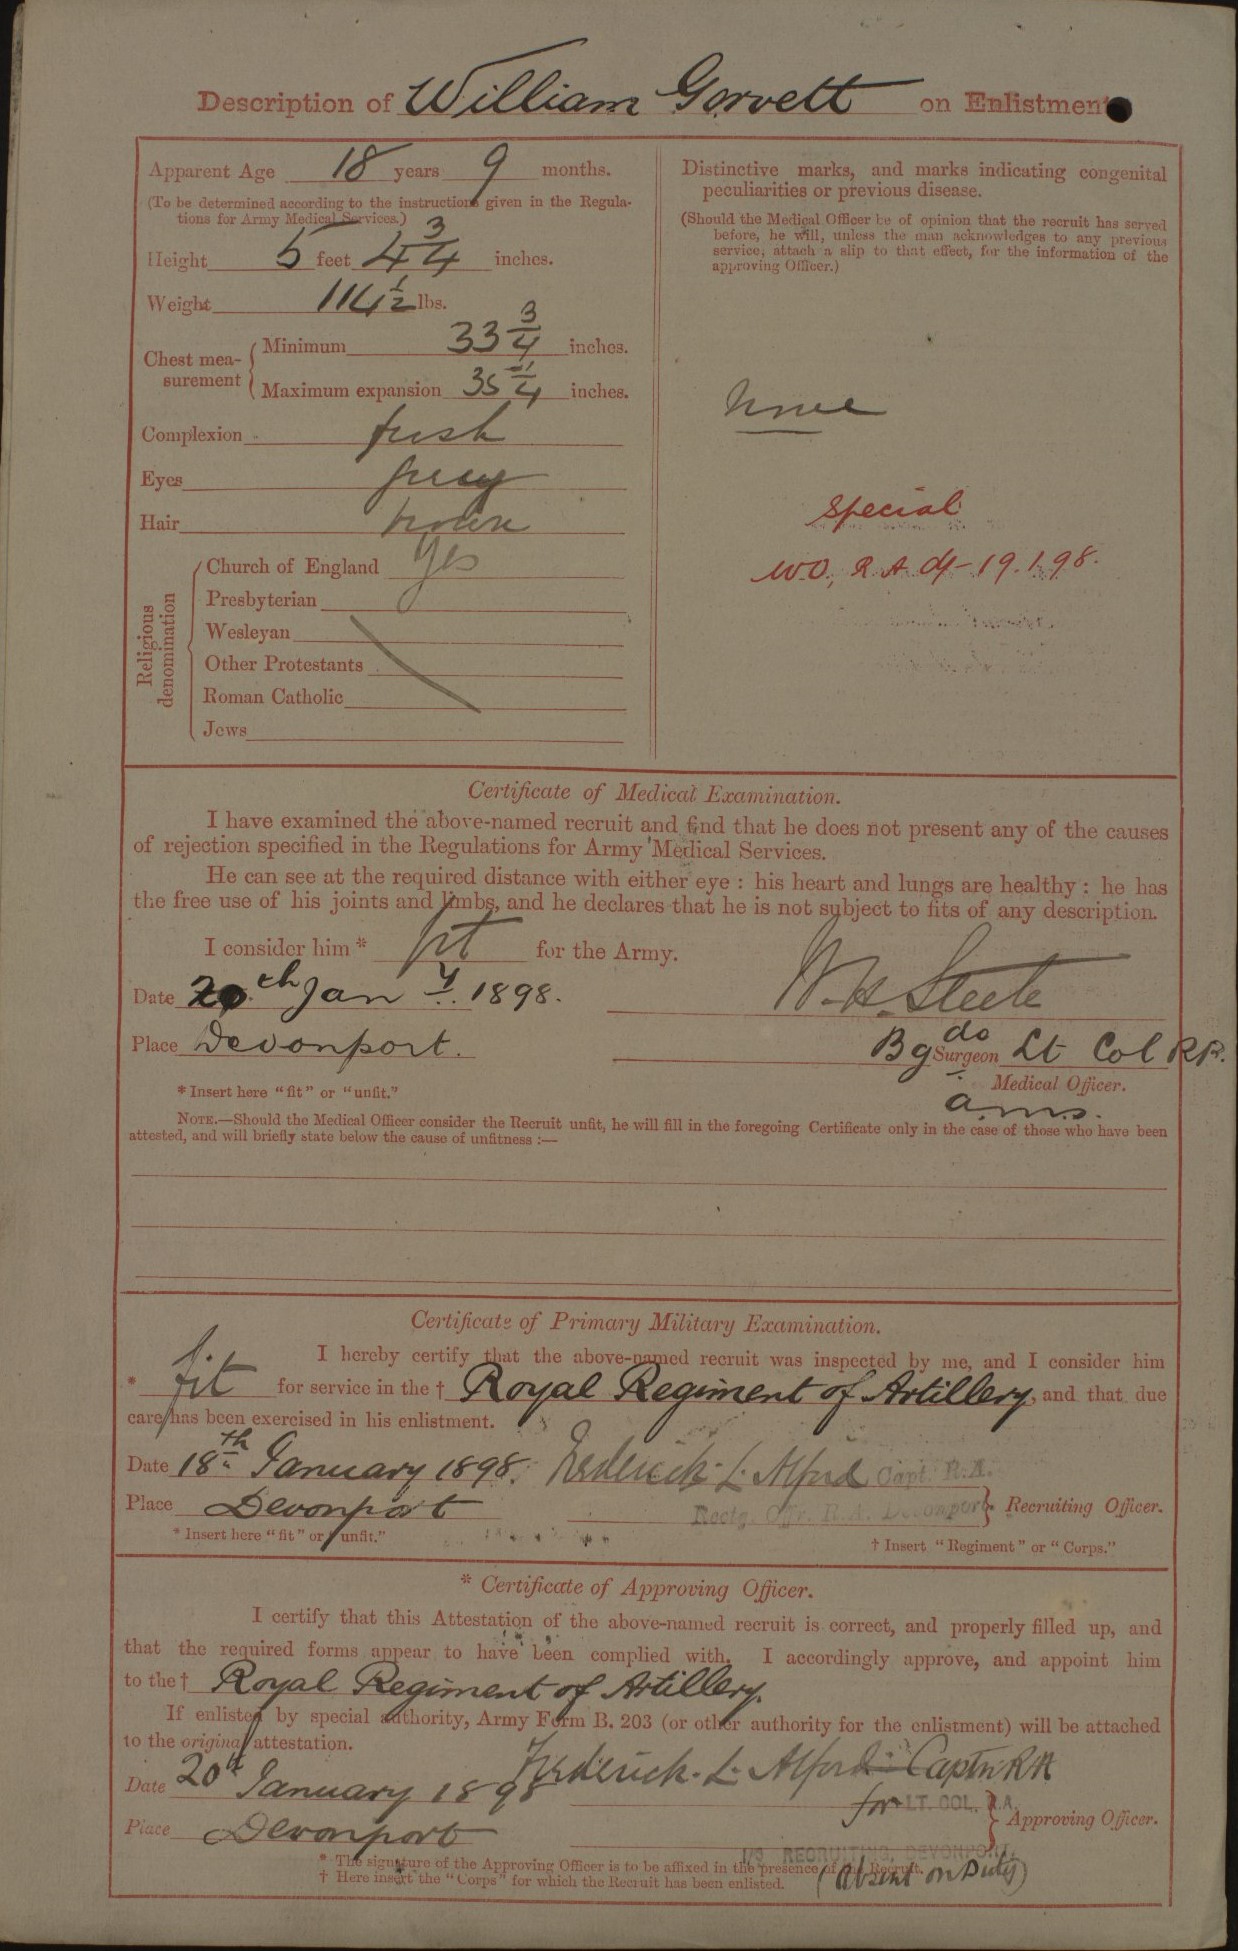 Description of William Gorvett on Enlistment
Apparent Age 18 years 9 months.
(To be determined according to the instructions given in the Regula-
tions for Army Medical Services.)
Height 5 feet 4 3/4 inches.
Weight 114 1/2 lbs.
Chest mea-
surement
Minimum 33 3/4 inches.
Maximum expansion 35 1/4 inches.
Complexion fresh
Eyes grey
Hair brown
Religious
denomination
Church of England Yes
Presbyterian
Wesleyan
Other Protestants
Roman Catholic
Jews
Distinctive marks, and marks indicating congenital
peculiarities or previous disease.
(Should the Medical Officer be of opinion that the recruit has served
before, he will, unless the man acknowledges to any previous
service, attach a slip to that effect, for the information of the
approving Officer.)
None
Special
W.O, R A 19.1.98.
Certificate of Medical Examination.
I have examined the above-named recruit and find that he does not present any of the causes
of rejection specified in the Regulations for Army Medical Services.
He can see at the required distance with either eye : his heart and lungs are healthy : he has
the free use of his joints and limbs, and he declares that he is not subject to fits of any description.
I consider him * fit for the Army.
Date 20th Jany 1898.
W. H. Steele
Place Devonport.
Bg do Surgeon Lt Col R.P.
Medical Officer.
a.m.s.
* Insert here "fit" or "unfit."
NOTE.—Should the Medical Officer consider the Recruit unfit, he will fill in the foregoing Certificate only in the case of those who have been
attested, and will briefly state below the cause of unfitness :—
Certificate of Primary Military Examination.
I hereby certify that the above-named recruit was inspected by me, and I consider him
* fit for service in the † Royal Regiment of Artillery, and that due
care has been exercised in his enlistment.
Date 18th January 1898. Frederick L. Alford Capt. R.A.
Place Devonport Rectg. Offr. R.A. Devonport. Recruiting Officer.
* Insert here "fit" or "unfit."
† Insert "Regiment" or "Corps."
* Certificate of Approving Officer.
I certify that this Attestation of the above-named recruit is correct, and properly filled up, and
that the required forms appear to have been complied with. I accordingly approve, and appoint him
to the † Royal Regiment of Artillery.
If enlisted by special authority, Army Form B. 203 (or other authority for the enlistment) will be attached
to the original attestation.
Date 20th January 1898 Frederick. L. Alford Captn RA
for LT. COL. R.A.
Place Devonport
Approving Officer.
RECRUITING, DEVONPORT.
* The signature of the Approving Officer is to be affixed in the presence of the Recruit.
† Here insert the "Corps" for which the Recruit has been enlisted.
(Absent on Duty)